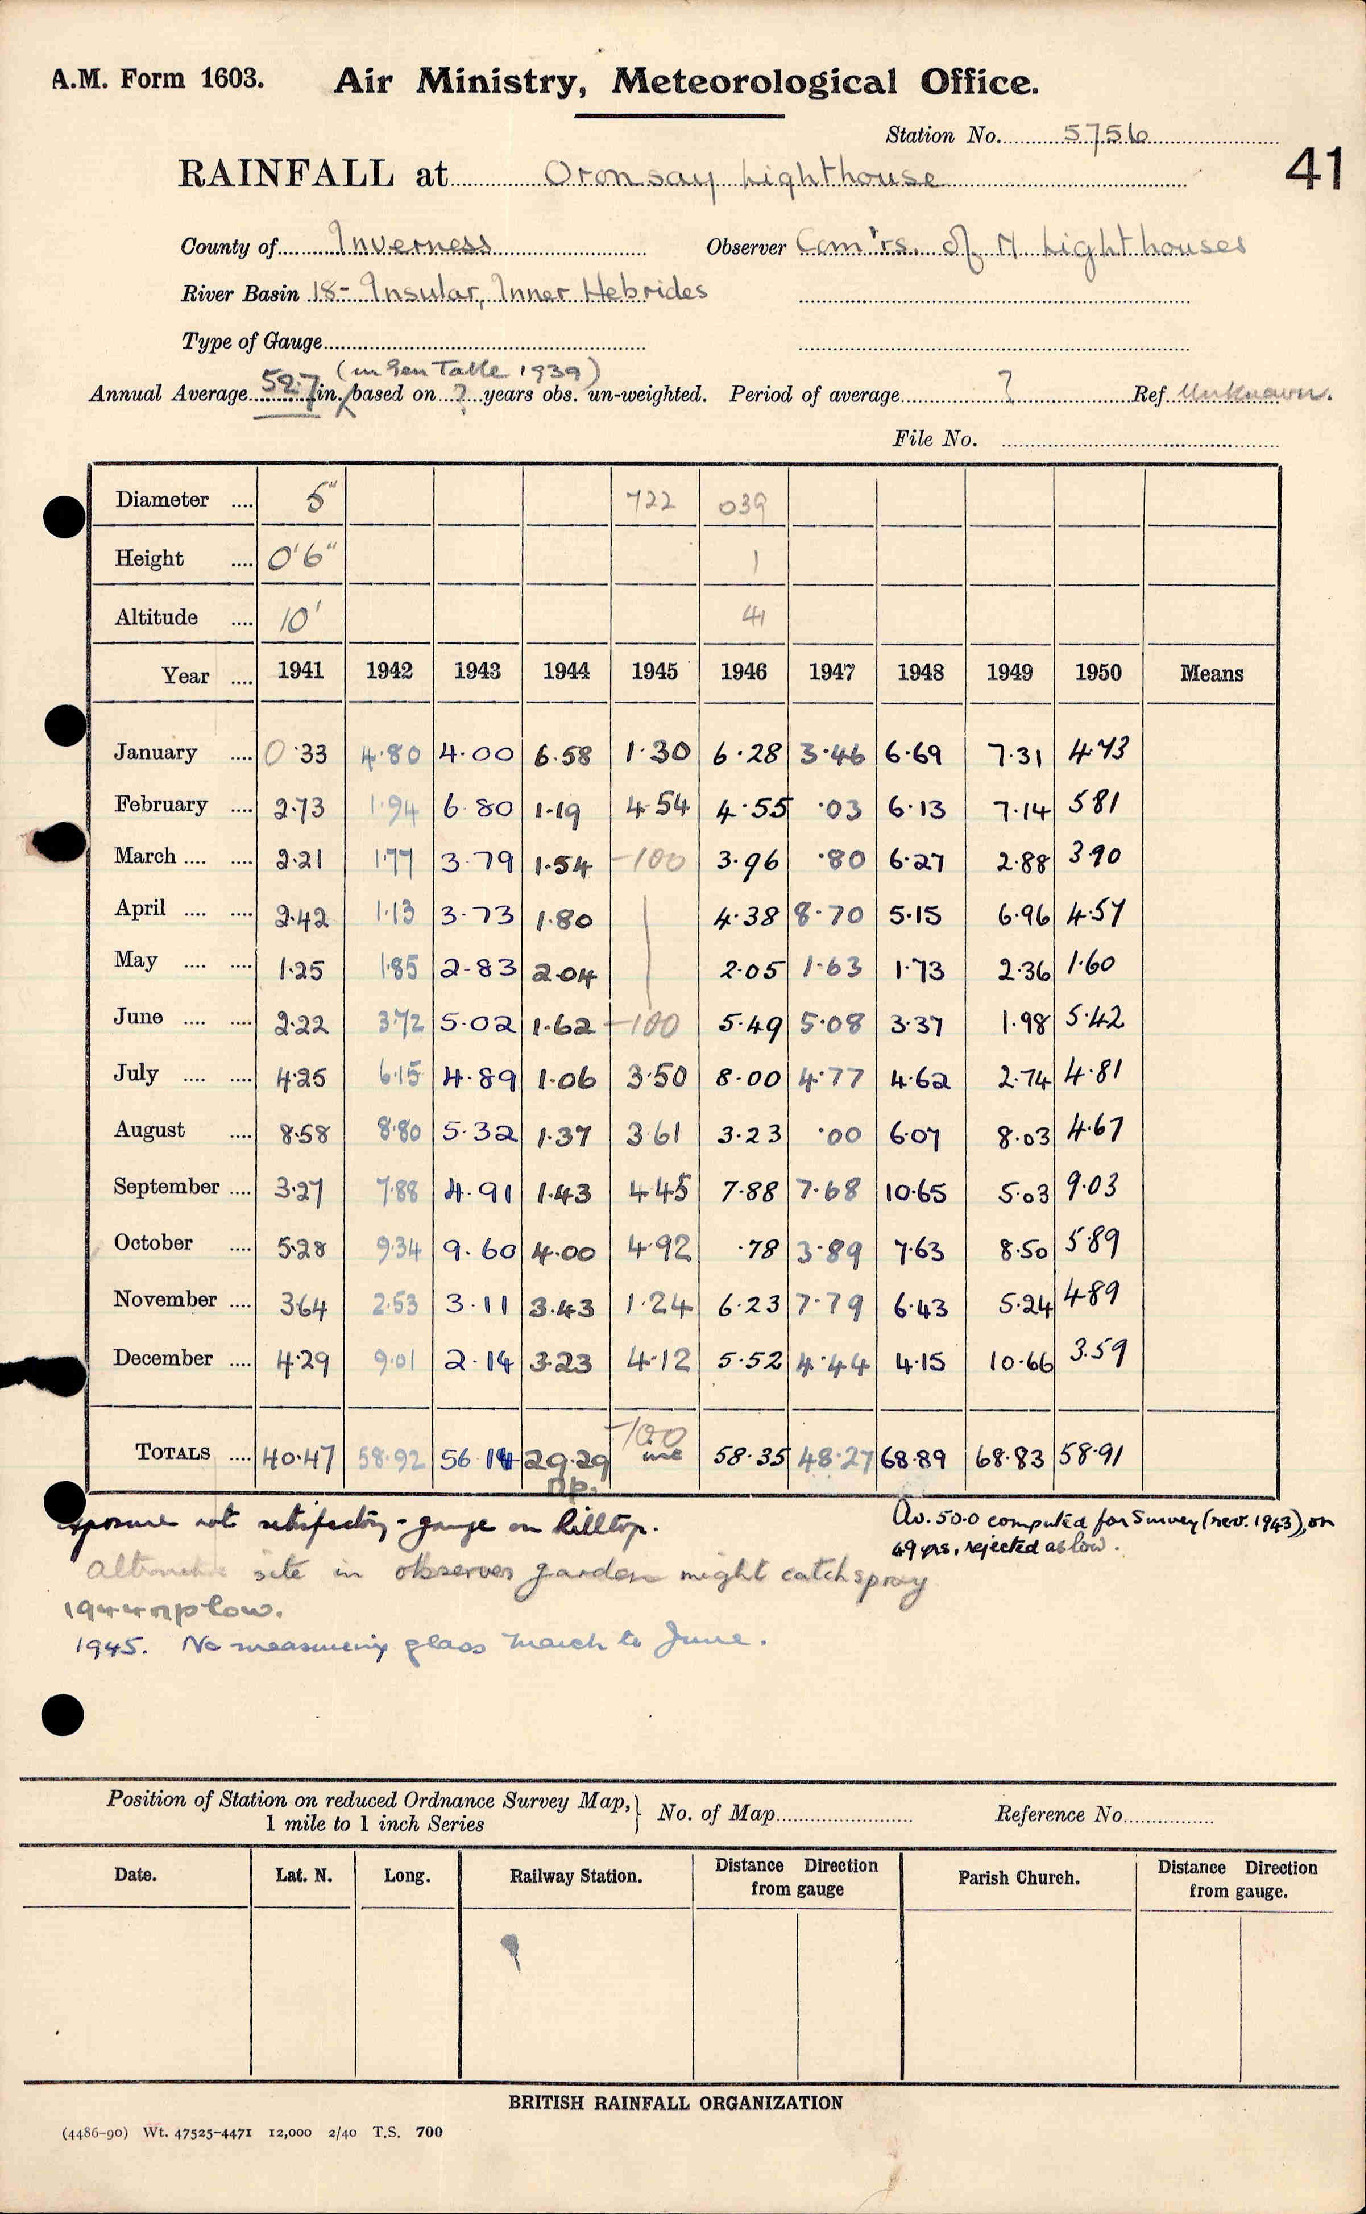 A.M. Form 1603. Air Ministry, Meteorological Office.
Station No. 5756
41
RAINFALL at Oronsay Lighthouse
County of Inverness Observer Com'rs. of N Lighthouses
River Basin 18- Insular, Inner Hebrides
Type of Gauge
(in Gen Table 1939)
Annual Average 52.7 in. based on ? years obs. un-weighted. Period of average ? Ref Unknown.
File No.
Diameter 5" 722 039
Height 0'6" 1
Altitude 10' 41
Year 1941 1942 1943 1944 1945 1946 1947 1948 1949 1950 Means
January 0.33 4.80 4.00 6.58 1.30 6.28 3.46 6.69 7.31 4.73
February 2.73 1.94 6.80 1.19 4.54 4.55 .03 6.13 7.14 5.81
March 2.21 1.77 3.79 1.54 -100 3.96 .80 6.27 2.88 3.90
April 2.42 1.13 3.73 1.80 4.38 8.70 5.15 6.96 4.57
May 1.25 1.85 2.83 2.04 2.05 1.63 1.73 2.36 1.60
June 2.22 3.72 5.02 1.62 -100 5.49 5.08 3.37 1.98 5.42
July 4.25 6.15 4.89 1.06 3.50 8.00 4.77 4.62 2.74 4.81
August 8.58 8.80 5.32 1.37 3.61 3.23 .00 6.07 8.03 4.67
September 3.27 7.88 4.91 1.43 4.45 7.88 7.68 10.65 5.03 9.03
October 5.28 9.34 9.60 4.00 4.92 .78 3.89 7.63 8.50 5.89
November 3.64 2.53 3.11 3.43 1.24 6.23 7.79 6.43 5.24 4.89
December 4.29 9.01 2.14 3.23 4.12 5.52 4.44 4.15 10.66 3.59
-100
TOTALS 40.47 58.92 56.14 29.29 inc 58.35 48.27 68.89 68.83 58.91
np.
Exposure not satisfactory - gauge on hilltop.
Alternative site in observers garden might catch spray
1944 np low.
1945. No measuring glass March to June.
Av. 50.0 computed for Survey (nov. 1943), on
49 yrs, rejected as low.
Position of Station on reduced Ordnance Survey Map, 1 mile to 1 inch Series No. of Map Reference No.
Date. Lat. N. Long. Railway Station. Distance Direction from gauge Parish Church. Distance Direction from gauge.
BRITISH RAINFALL ORGANIZATION
(4486-90) Wt. 47525-4471 12,000 2/40 T.S. 700